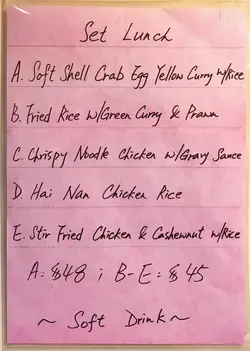 Set Lunch
A. Soft Shell Crab Egg Yellow Curry w/Rice
B. Fried Rice w/Green Curry & Prawn
C. Chrispy Noodle Chicken w/Gravy Sauce
D. Hai Nan Chicken Rice
E. Stir Fried Chicken & Cashewnut w/Rice
A: $48 ; B-E: $45
~ Soft Drink ~